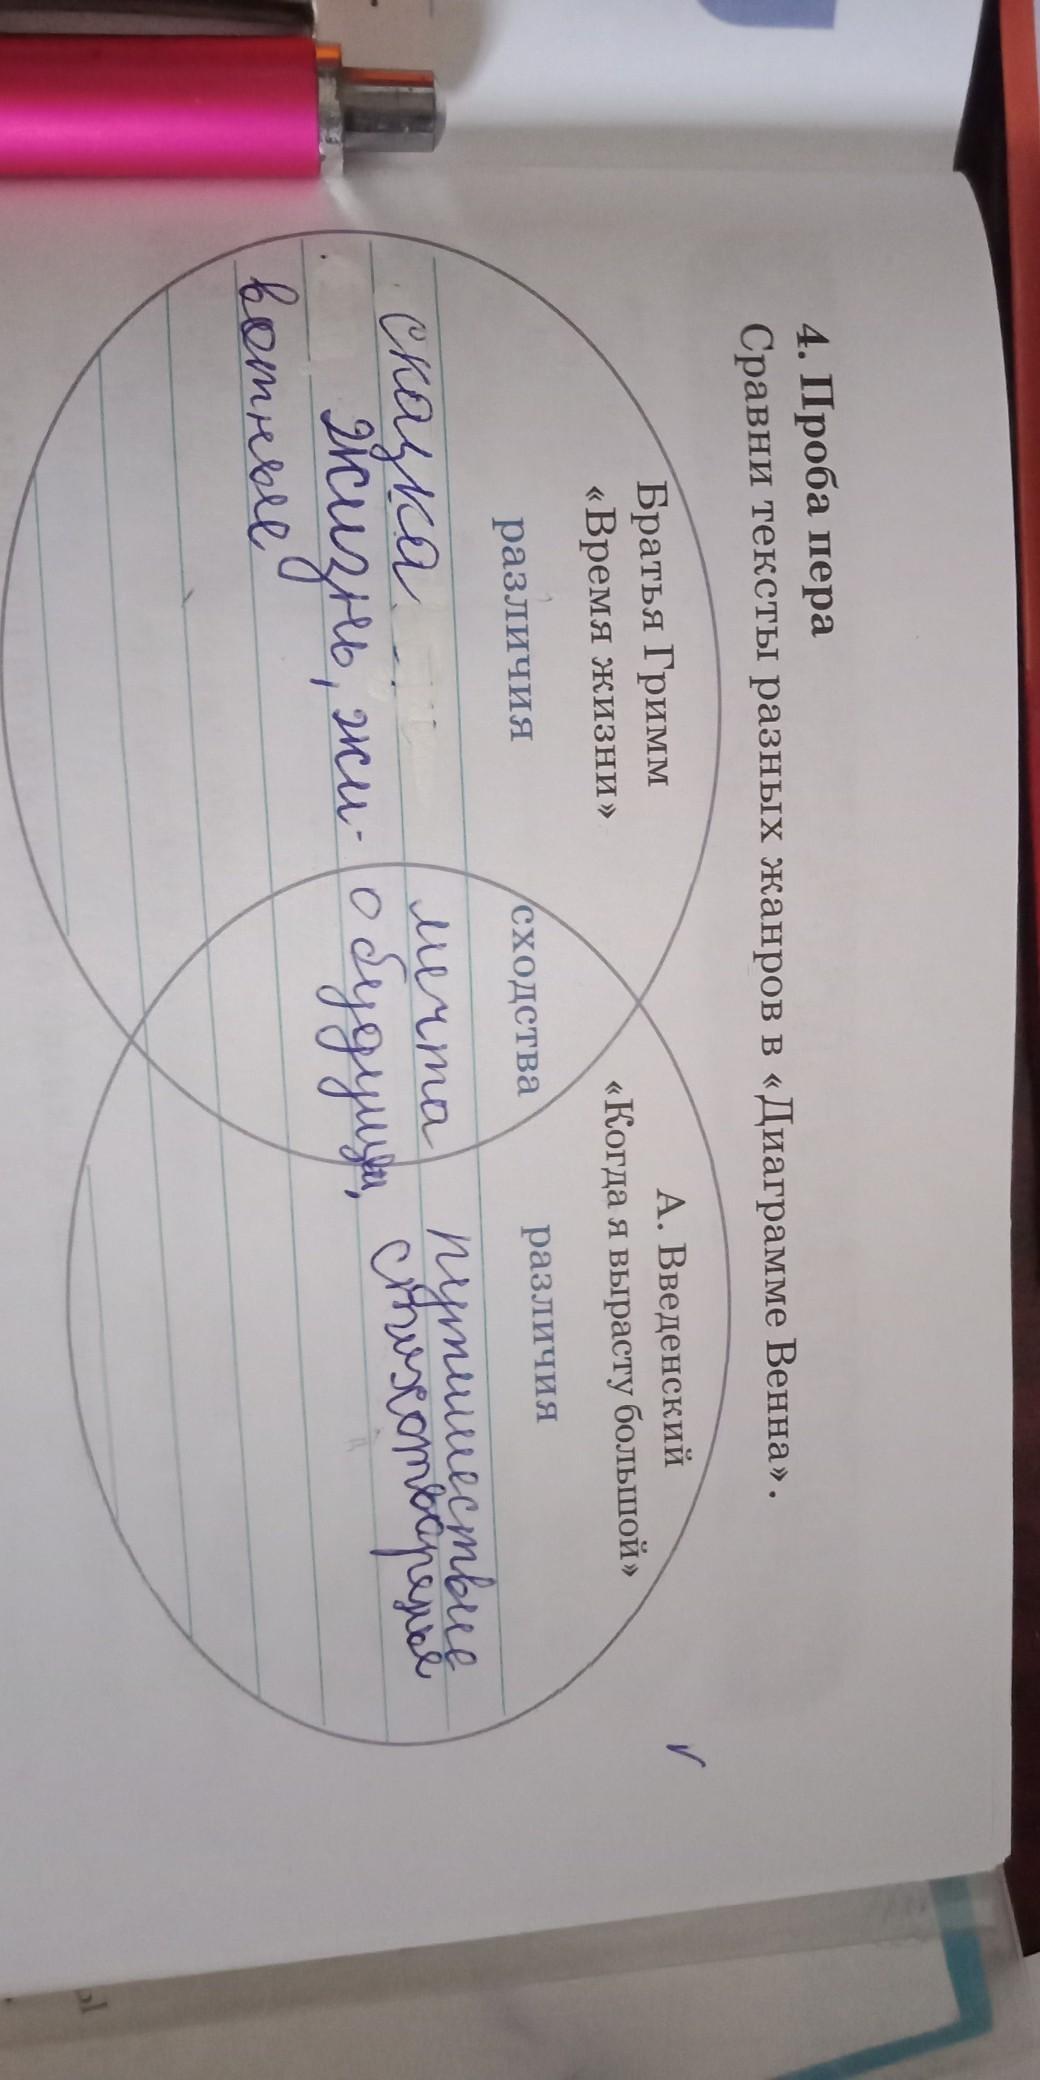 4. Проба пера
Сравни тексты разных жанров в «Диаграмме Венна».
Братья Гримм
«Время жизни»
различия
сказка
жизнь, жи-
вотные
сходства
мечта
о будущем,
А. Введенский
«Когда я вырасту большой»
различия
путишествие
стихотворенье
ы